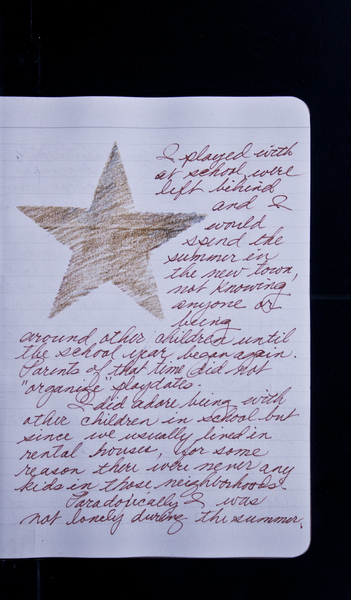 I played with
at school, were
left behind
and I
would
spend the
summer in
the new town,
not knowing
anyone or
being
around other children until
the school year began again.
Parents of that time did not
"organize" playdates.
I did adore being with
other children in school but
since we usually lived in
rental houses, for some
reason there were never any
kids in those neighborhoods.
Paradoxically I was
not lonely during the summer.